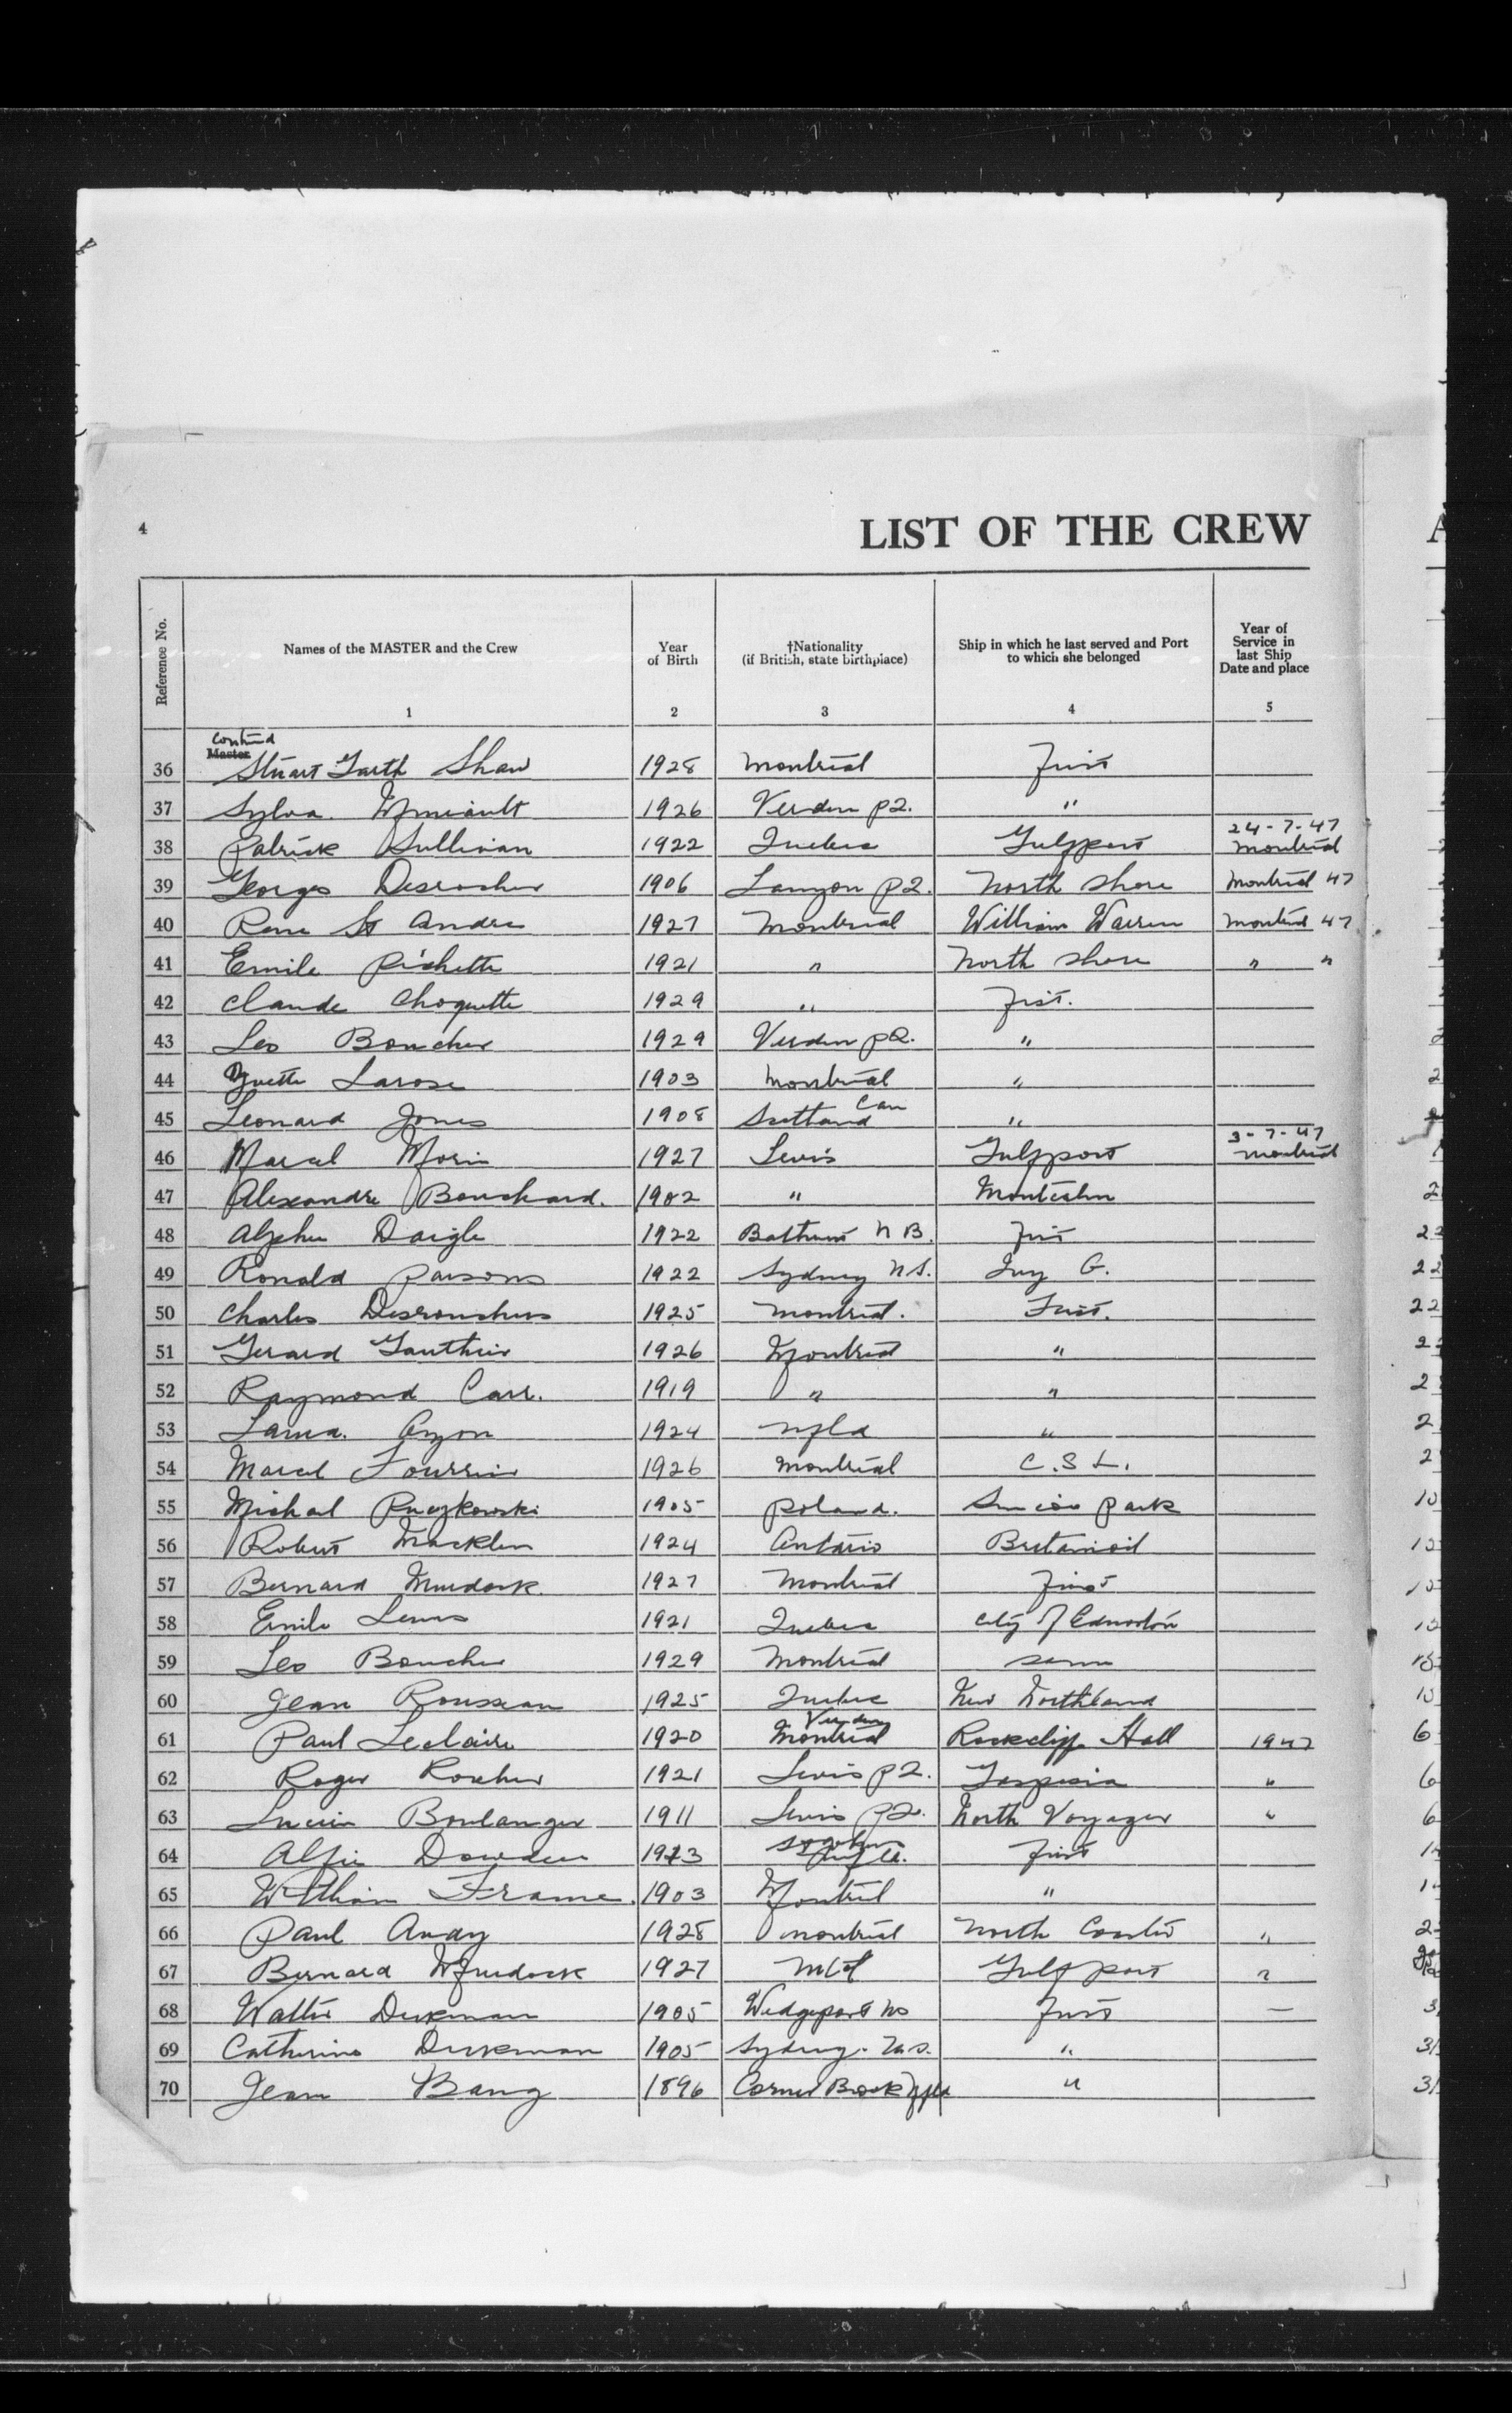 4
LIST OF THE CREW
Reference No.
Names of the MASTER and the Crew
1
Year of Birth
2
†Nationality (if British, state birthplace)
3
Ship in which he last served and Port to which she belonged
4
Year of Service in last Ship Date and place
5
Contind
Master
36 Stuart Garth Shaw 1928 Montreal First
37 Sylva 1926 Verdun P2. "
38 Patrick Sullivan 1922 Quebec Gulfport 24-7-47 Montreal
39 Georges Desrocher 1906 P2. North Shore Montreal 47
40 Rene St Andre 1927 Montreal William Warren Montreal 47
41 Emile Pichette 1921 " North Shore " "
42 Claude Choquette 1929 " First.
43 Leo Boucher 1929 Verdun PQ. "
44 Yvette Larose 1903 Montreal "
45 Leonard Jones 1908 Scotland Can "
46 Marcel Morin 1927 Levis Gulfport 3-7-47 Montreal
47 Alexandre Bouchard. 1902 " Montcalm
48 Daigle 1922 Bathurst N B. First
49 Ronald Parsons 1922 Sydney N.S. Guy G.
50 Charles 1925 Montreal. First.
51 Gerard Gauthier 1926 Montreal "
52 Raymond Carr. 1919 " "
53 1924 Nfld "
54 Marcel 1926 Montreal C.S L.
55 Michal 1905 Poland. Park
56 Robert Macklin 1924 Ontario Britamoil
57 Bernard Murdock. 1927 Montreal First
58 Emile 1921 Quebec City of Edmonton
59 Leo Boucher 1929 Montreal same
60 Jean Rousseau 1925 Quebec New Northland
61 Paul Leclaire 1920 Montreal Verdun Rockcliffe Hall 1947
62 Roger 1921 Levis P2. Gaspesia "
63 Lucien Boulanger 1911 Levis P2. North Voyager "
64 Dowden 1923 Nfld. First
65 William Frame. 1903 Montreal "
66 Paul Andy 1928 Montreal North Coaster "
67 Bernard Murdock 1927 Mtl Gulfport "
68 Walter 1905 Wedgeport NS First —
69 Catherine 1905 Sydney. N.S. "
70 Jean Bang 1896 Corner Brook Nfld "